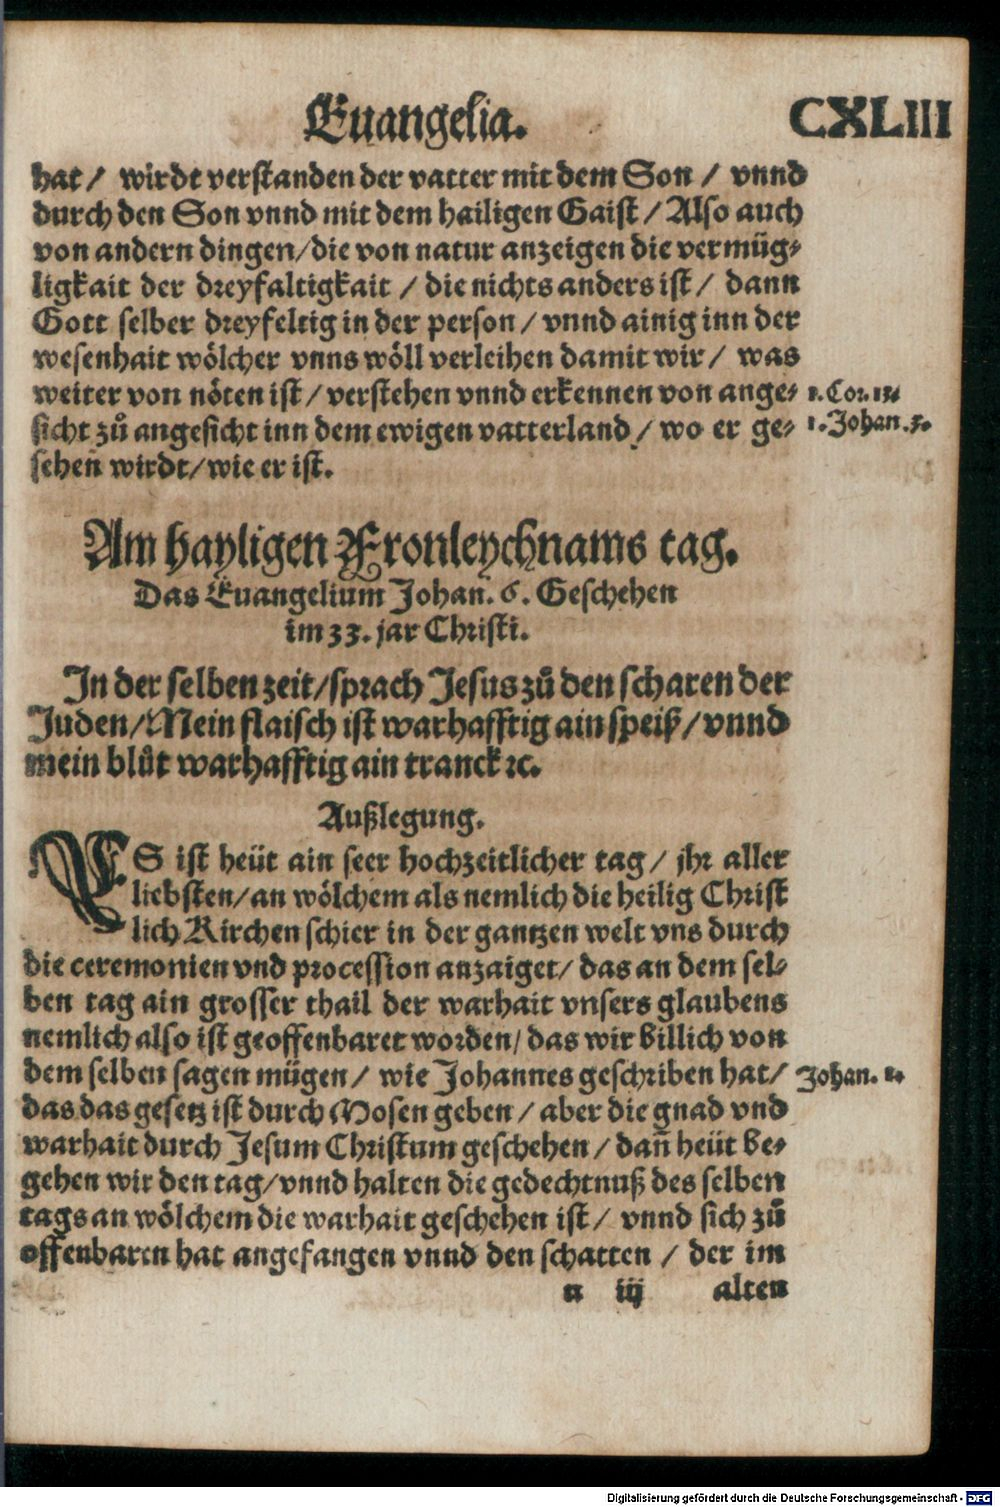 Euangelia. CXLIII
hat / wirdt verstanden der vatter mit dem Son / vnnd
durch den Son vnnd mit dem hailigen Gaist / Also auch
von andern dingen/die von natur anzeigen die vermüg-
ligkait der dreyfaltigkait / die nichts anders ist / dann
Gott selber dreyfeltig in der person / vnnd ainig inn der
wesenhait wölcher vnns wöll verleihen damit wir / was
weiter von nöten ist / verstehen vnnd erkennen von ange-
1. Cor. 13.
sicht zů angesicht inn dem ewigen vatterland / wo er ge-
1. Johan. 3.
sehen wirdt/wie er ist.
Am hayligen Fronleychnams tag.
Das Euangelium Johan. 6. Geschehen
im 33. jar Christi.
In der selben zeit/sprach Jesus zů den scharen der
Juden/Mein flaisch ist warhafftig ain speiß/vnnd
mein blůt warhafftig ain tranck ꝛc.
Außlegung.
ES ist heüt ain seer hochzeitlicher tag / jhr aller
liebsten/an wölchem als nemlich die heilig Christ
lich Kirchen schier in der gantzen welt vns durch
die ceremonien vnd procession anzaiget/ das an dem sel-
ben tag ain grosser thail der warhait vnsers glaubens
nemlich also ist geoffenbaret worden/ das wir billich von
dem selben sagen mügen / wie Johannes geschriben hat/
Johan. 1.
das das gesetz ist durch Mosen geben / aber die gnad vnd
warhait durch Jesum Christum geschehen / dañ heüt be-
gehen wir den tag/vnnd halten die gedechtnuß des selben
tags an wölchem die warhait geschehen ist / vnnd sich zů
offenbaren hat angefangen vnnd den schatten / der im
n iij alten
Digitalisierung gefördert durch die Deutsche Forschungsgemeinschaft - DFG